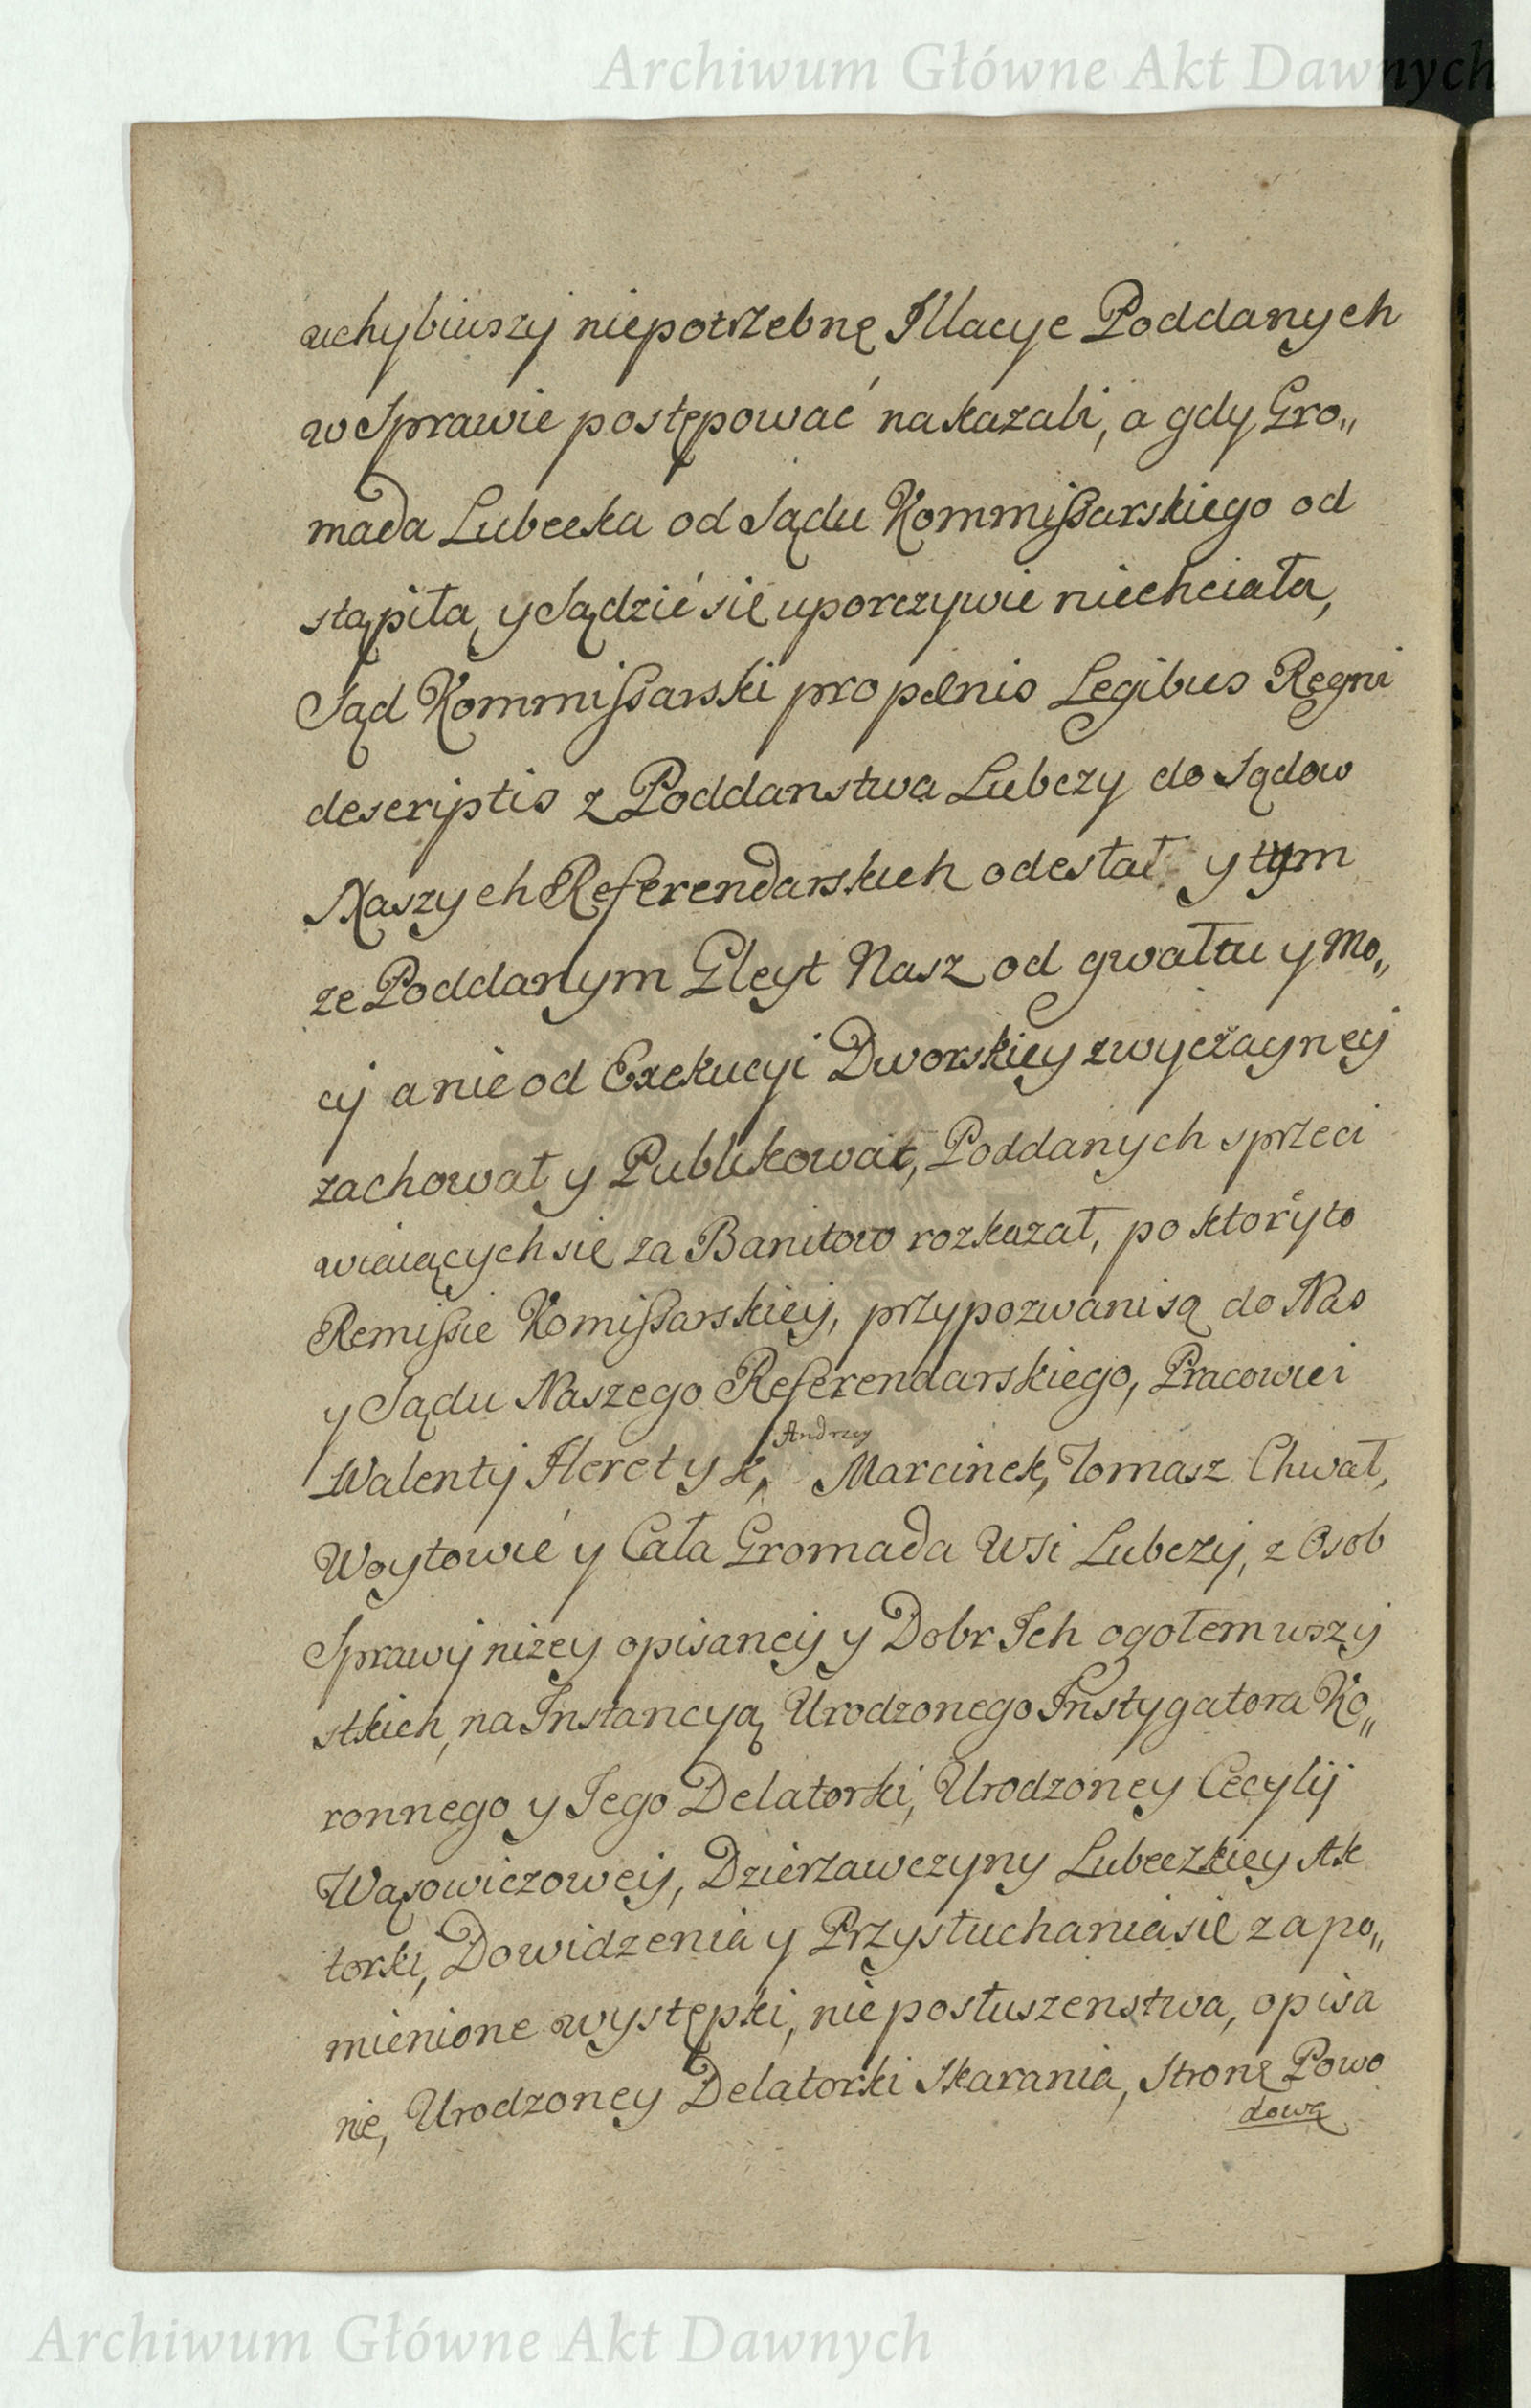 Archiwum Główne Akt Dawnych
uchybiwszy niepotrzebnę Illacye Poddanych
w Sprawie postępować nakazali, a gdy Gro„
mada Lubecka od Sądu Kommißarskiego od
stąpiła, y Sądzić się uporczywie niechciała,
Sąd Kommißarski pro pœnis Legibus Regni
descriptis z Poddanstwa Lubczy do Sądow
Naszych Referendarskich odesłał y tym
ze Poddanym Gleyt Nasz od gwałtu y Mo„
cy a nie od Exekucyi Dworskiey zwyczayney
zachował y Publikował, Poddanych sprzeci
wiaiących się za Banitow rozkazał, po ktoryto
Remißie Komißarskiey, przypozwani są do Nas
y Sądu Naszego Referendarskiego, Pracowici
Andrzey
Walenty Heretyk, Marcinek, Tomasz Chwał,
Woytowie y Cała Gromada Wsi Lubczy, z Osob
Sprawy niżey opisaney y Dobr Ich ogołem wszy
stkich, na Instancyą Urodzonego Instygatora Ko„
ronnego y Jego Delatorki, Urodzoney Cecylij
Wąsowiczowey, Dzierzawczyny Lubeczkiey Ak
torki, Dowidzenia y Przysłuchania się za po„
mienione występki, nieposłuszenstwa, opisa
nie, Urodzoney Delatorki Skarania, Stronę Powo
dową
Archiwum Główne Akt Dawnych